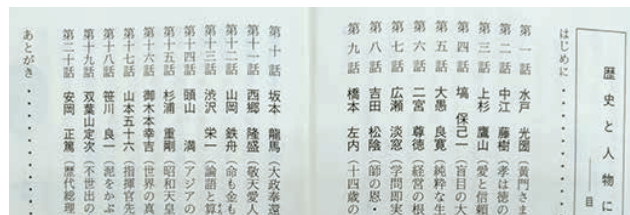 歴史と人物に
目
はじめに・・・・・・・・・・
第一話 水戸 光圀（黄門さま
第二話 中江 藤樹（孝は徳の
第三話 上杉 鷹山（愛と信頼
第四話 塙 保己一（盲目の大
第五話 大愚 良寛（純粋な生
第六話 二宮 尊徳（経営の根
第七話 広瀬 淡窓（学問即実
第八話 吉田 松陰（師の恩・
第九話 橋本 左内（十四歳の
第十話 坂本 龍馬（大政奉還
第十一話 西郷 隆盛（敬天愛人
第十二話 山岡 鉄舟（命も金も
第十三話 渋沢 栄一（論語と算
第十四話 頭山 満（アジアの
第十五話 杉浦 重剛（昭和天皇
第十六話 御木本幸吉（世界の真
第十七話 山本五十六（指揮官先
第十八話 笹川 良一（泥をかぶ
第十九話 双葉山定次（不世出の
第二十話 安岡 正篤（歴代総理
あとがき・・・・・・・・・・